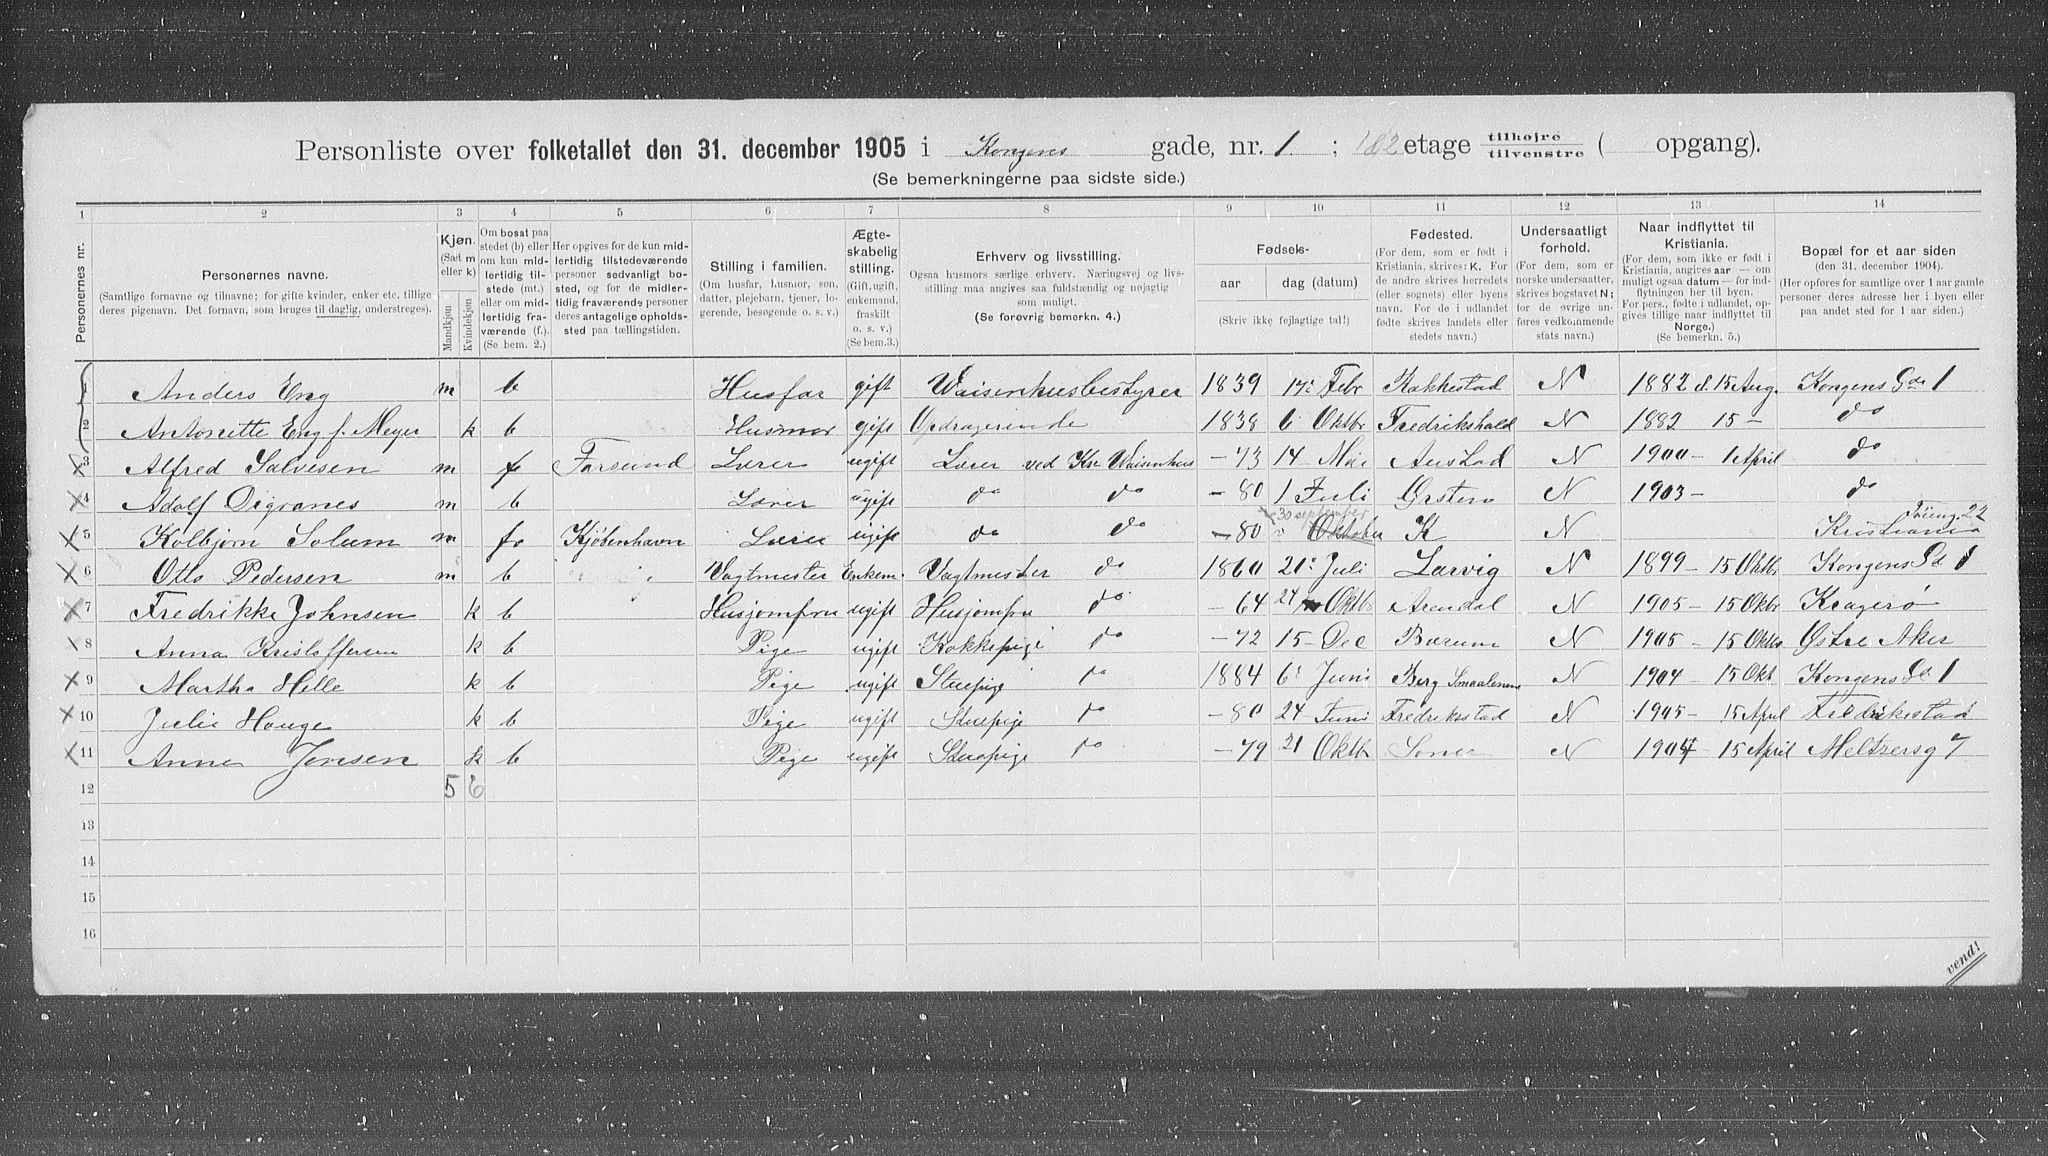 Personliste over folketallet den 31. december 1905 i Kongens gade, nr. 1. ; 1&2 etage tilhøjre tilvenstre ( opgang).
(Se bemerkningerne paa sidste side.)
1 2 3 4 5 6 7 8 9 10 11 12 13 14
Personernes nr.
Personernes navne.
(Samtlige fornavne og tilnavne; for gifte kvinder, enker etc. tillige
deres pigenavn. Det fornavn, som bruges til daglig, understreges).
Kjøn.
(Sæt m
eller k)
Mandkjøn
Kvindekjøn
Om bosat paa
stedet (b) eller
om kun mid-
lertidig til-
stede (mt.)
eller om mid-
lertidig fra-
værende (f.).
(Se bem. 2.)
Her opgives for de kun mid-
lertidig tilstedeværende
personer sedvanlig bo-
sted, og for de midler-
tidig fraværende personer
deres antagelige opholds-
sted paa tællingstiden.
Stilling i familien.
(Om husfar, husmor, søn,
datter, plejebarn, tjener, lo-
gerende, besøgende o. s. v.)
Ægte-
skabelig
stilling.
(Gift, ugift,
enkemand,
fraskilt
o. s. v.)
(Se bem.3.)
Erhverv og livsstilling.
Ogsaa husmors særlige erhverv. Næringsvej og livs-
stilling maa angives saa fuldstændig og nøjagtig
som muligt.
(Se forøvrig bemerkn. 4.)
Fødsels-
aar dag (datum)
(Skriv ikke fejlagtige tal!)
Fødested.
(For dem, som er født i
Kristiania, skrives: K. For
de andre skrives herredets
(eller sognets) eller byens
navn. For de i udlandet
fødte skrives landets eller
stedets navn.)
Undersaatligt
forhold.
(For dem, som er
norske undersaatter,
skrives bogstavet N;
for de øvrige an-
føres vedkommende
stats navn.)
Naar indflyttet til
Kristiania.
(For dem, som ikke er født i
Kristiania, angives aar — om
muligt ogsaa datum — for ind-
flytningen her til byen.
For pers., fødte i udlandet, op-
gives tillige naar indflyttet til
Norge.)
(Se bemerkn. 5.)
Bopæl for et aar siden
(den 31. december 1904).
(Her opføres for samtlige over 1 aar gamle
personer deres adresse her i byen eller
paa andet sted for 1 aar siden.)
1 Anders Eng m b Husfar gift Waisenhusbestyrer 1839 17 Febr Rakkestad N 1882 d. 15 Aug. Kongens Gd 1
2 Antonette Eng f. Meyer k b Husmor gift Opdragerinde 1838 6 Oktbr Fredrikshald N 1882 15 - do
3 Alfred Salvesen m f Farsund Lærer ugift Lærer ved Kr. Waisenhus - 73 14 Mai Austad N 1900 - 1 April do
4 Adolf Digranes m b Lærer ugift do do - 80 1 Juli Ørsten N 1903 - do
30 september Tøieng. 22
5 Kolbjørn Solum m f Kjøbenhavn Lærer ugift do do - 80 Oktober K N Kristiania
6 Otto Pedersen m b Vagtmester Enkem. Vagtmester do 1860 21 Juli Larvig N 1899 - 15 Oktbr Kongens Gd 1
7 Fredrikke Johnsen k b Husjomfru ugift Husjomfru do - 64 24 Oktbr Arendal N 1905 - 15 Okbr Kragerø
8 Anna Kristoffersen k b Pige ugift Kokkepige do - 72 15 - Dec Bærum N 1905 - 15 Oktbr Østre Aker
9 Martha Helle k b Pige ugift Stuepige do 1884 6 Juni Berg Smaalenene N 1904 - 15 Okt Kongens Gd 1
10 Julie Hauge k b Pige ugift Stuepige do - 80 24 Juni Fredriksstad N 1905 - 15 April Fredriksstad
11 Anna Jensen k b Pige ugift Stuepige do - 79 21 Oktbr Soner N 1904 - 15 April Meltzersg 7
12 5 6
13
14
15
16
vend!